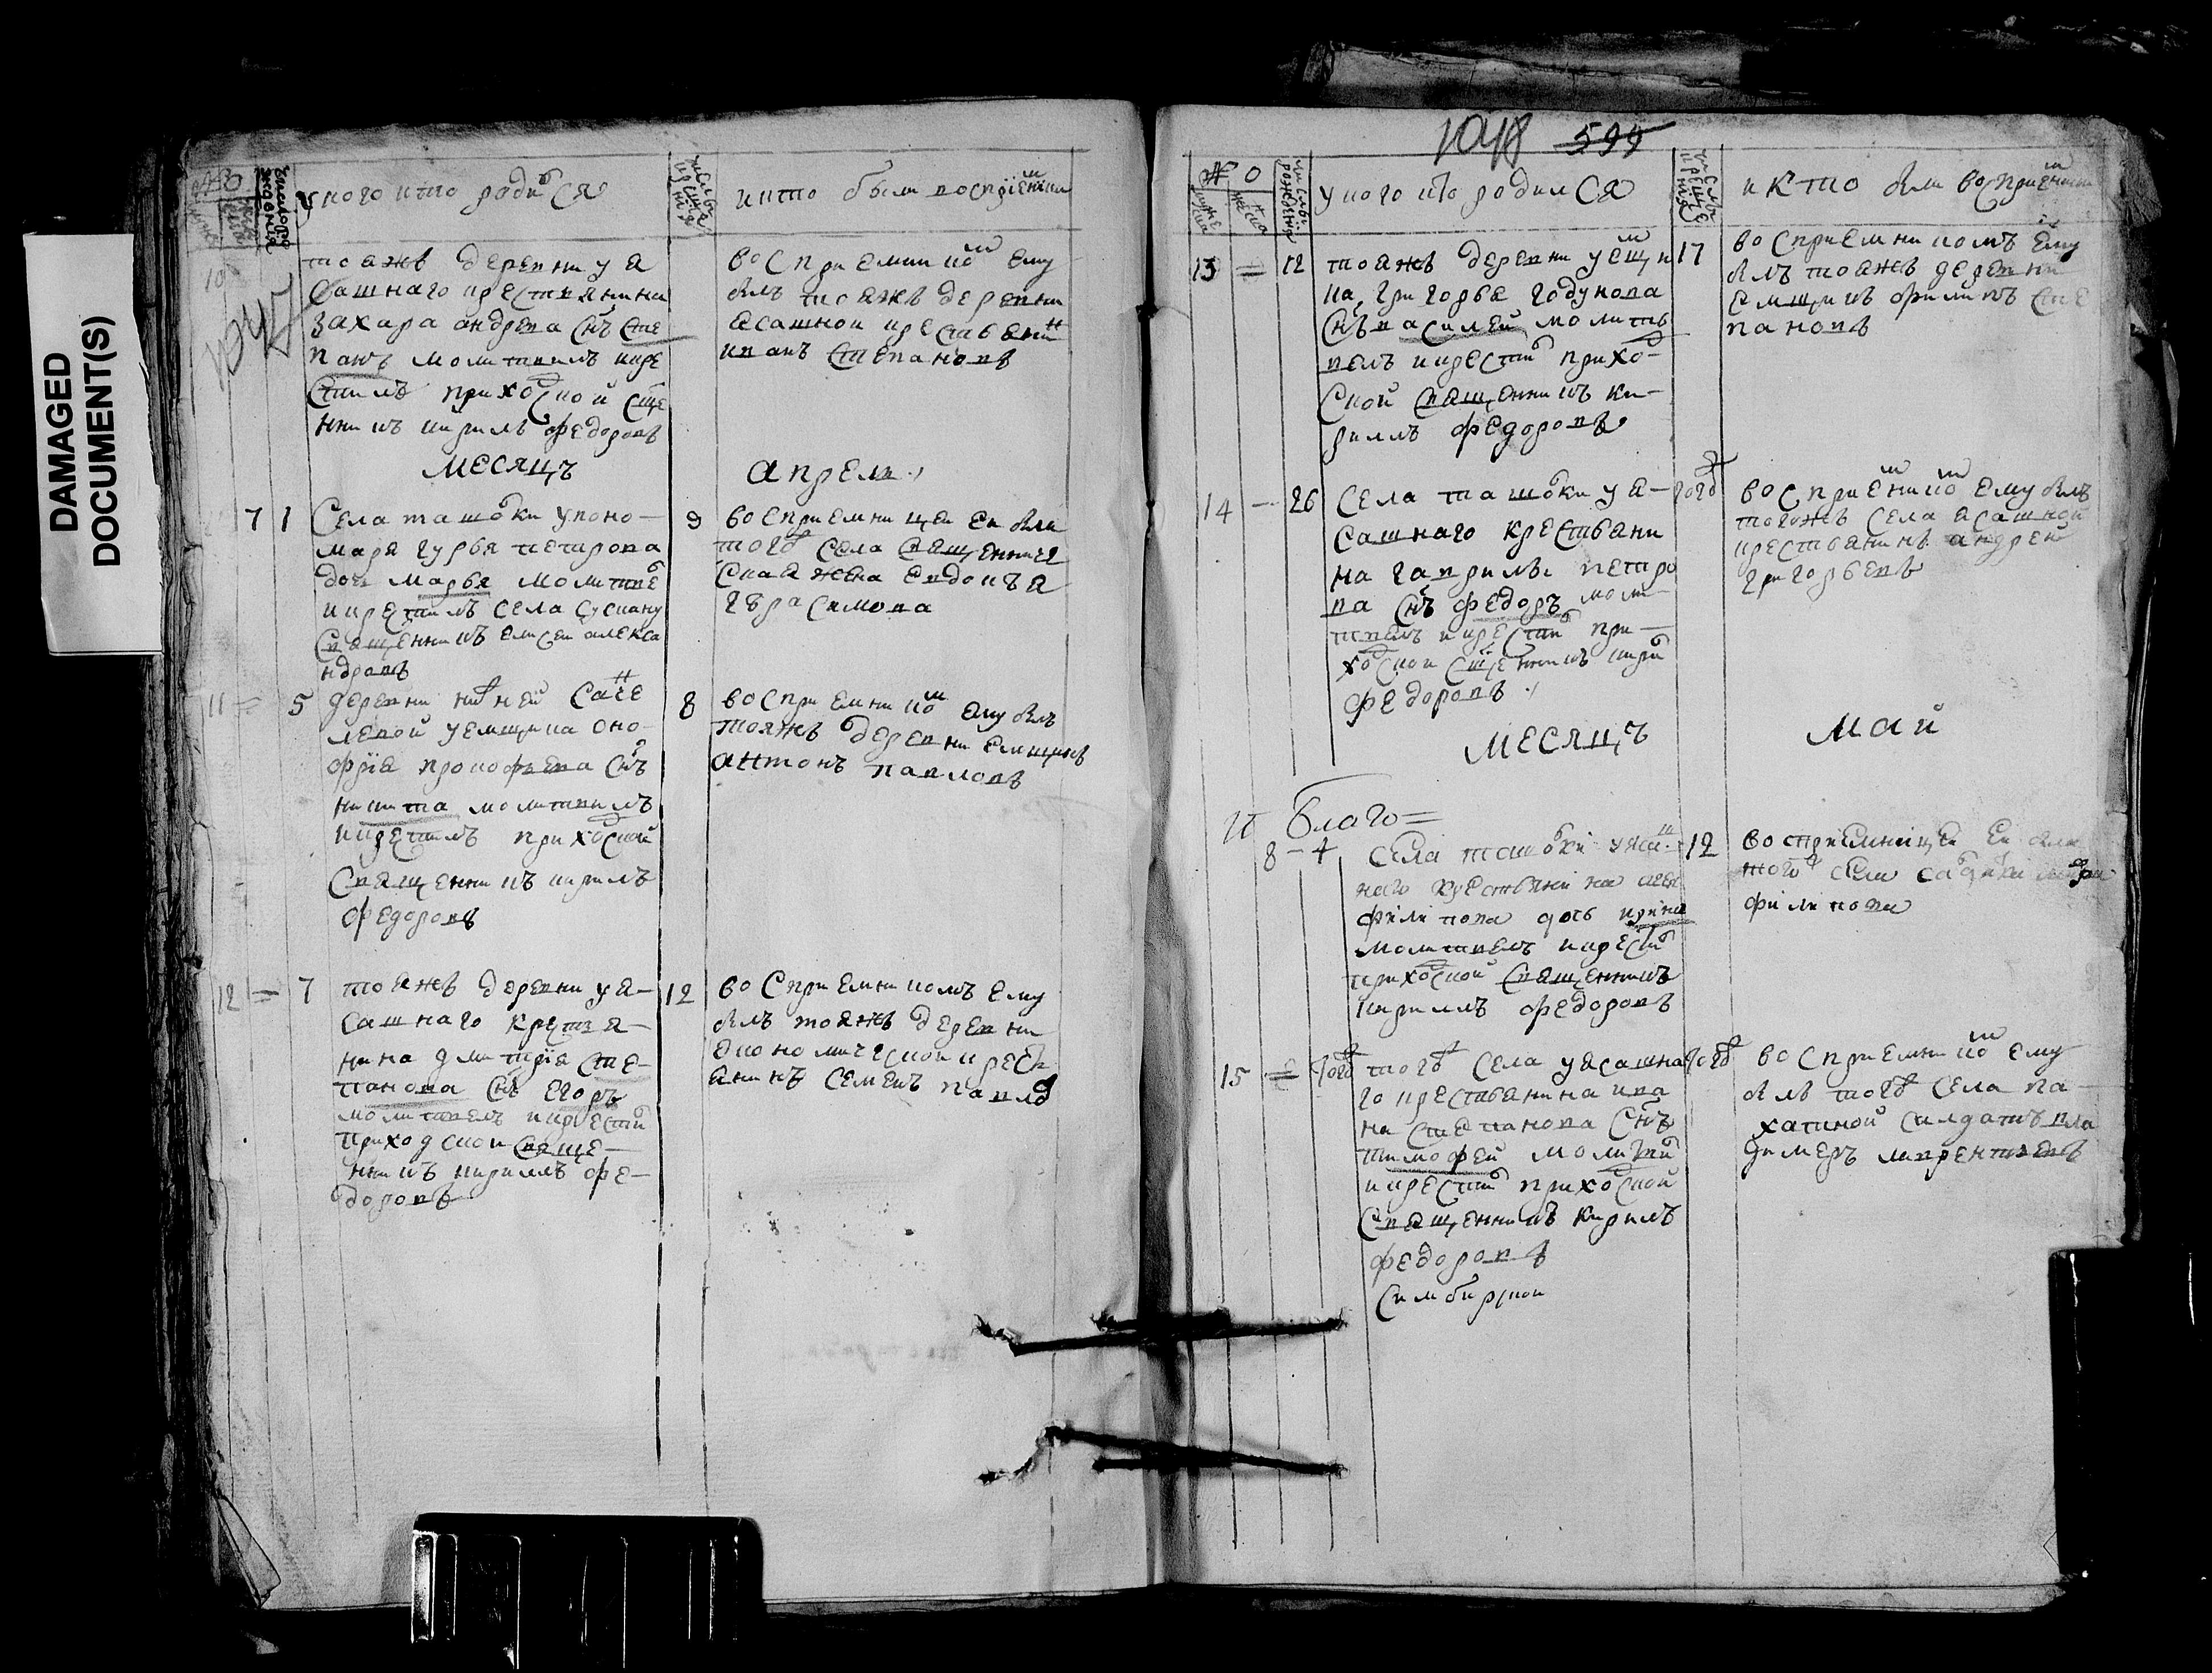 DAMAGED
DOCUMENT(S)
№
у кого кто родился
и кто были восприемники
10
тояжъ деревни у я
сашнаго крестьянина
захара андреева снъ сте
панъ молитвилъ и кре
стилъ приходской сще
нникъ кирилъ федоровъ
восприемникомъ ему
былъ тояжъ деревни
ясашной крестьянинъ
иванъ степановъ
месяцъ
апрель
7 1
села ташовки у поно
маря гурья петрова
дочь марья молитве
и крестилъ села сускану
священникъ елисеи алекса
ндровъ
9
восприемницеи еи была
тогожъ села священниче
ская жена евдокъя
гърасимова
11 = 5
деревни нижней саче
левой у емщика оно
фрiя прокофьева снъ
никита молитвилъ
и крестилъ приходской
священникъ кирилъ
федоровъ
8
восприемникомъ ему былъ
тояжъ деревни емщикъ
антонъ павловъ
12 = 7
тояжъ деревни у я
сашнаго крестья
нина дмитрiя сте
панова снъ егоръ
молитвелъ и крестилъ
приходской свяще
нникъ кириллъ фе
доровъ
12
восприемникомъ ему
былъ тояжъ деревни
економической крестъ
янинъ семенъ павловъ
1048 599
№
у кого кто родился
и кто были восприемники
13 = 12
тояжъ деревни у емщи
ка григорья годунова
снъ василей молить
велъ и крестилъ прихо
ской священникъ ки
риллъ федоровъ
17
восприемникомъ ему
былъ тояжъ деревни
емщикъ филипъ сте
пановъ
14 - 26
села ташовки у я
сашнаго крестьяни
на гаврилы петро
ва снъ федоръ моли
твелъ и крестилъ при
ходской сщенникъ кирилъ
федоровъ
тогожъ
восприемникомъ ему былъ
тогожъ села ясашной
крестьянинъ андрей
григорьевъ
месяцъ
май
благо=
8 - 4
села ташовки у яса
наго крестьянина
филипова дочь ирина
молитвелъ и крестилъ
приходской священникъ
кириллъ федоровъ
12
восприемницеи еи была
тогожъ села
филипова
15 =
тогожъ
тогожъ села у ясашна
го крестьянина ива
на степанова снъ
тимофей молитвилъ
и крестилъ приходской
священникъ кирилъ
федоровъ
симбирской
тогожъ
восприемникомъ ему
былъ тогожъ села па
хатной салдатъ вла
димеръ лаврентьевъ